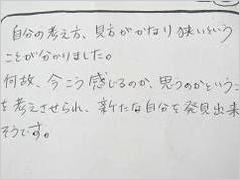 自分の考え方、見方がかなり狭いという
ことが分かりました。
何故、今こう感じるのか、思うのかというこ
を考えさせられ、新たな自分を発見出来
そうです。